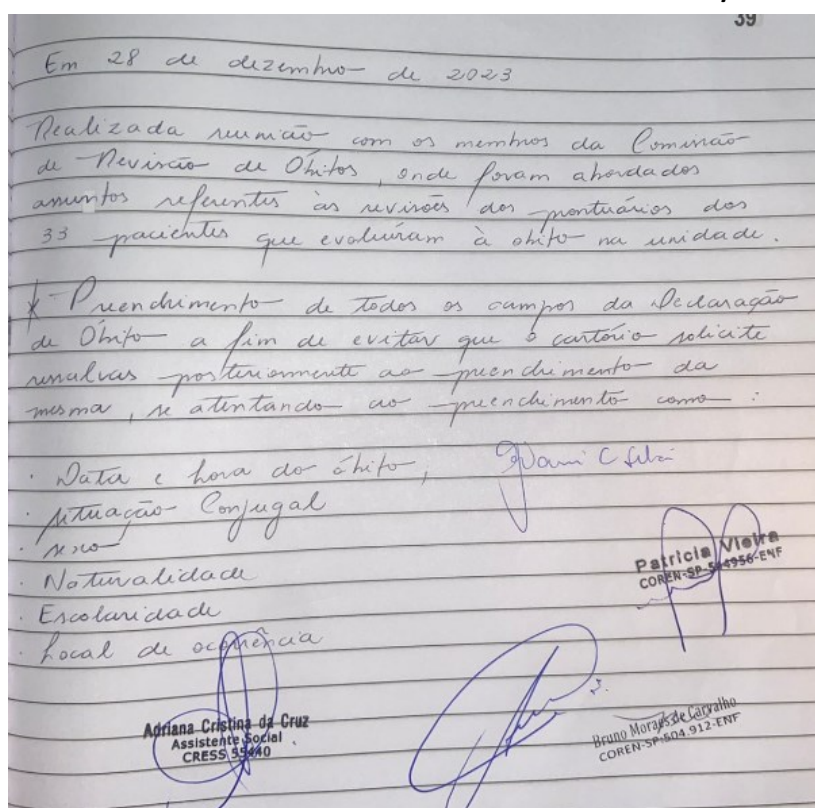 39
Em 28 de dezembro de 2023
Realizada reunião com os membros da Comissão
de Revisão de Óbitos, onde foram abordados
assuntos referentes às revisões dos prontuários dos
33 pacientes que evoluíram à óbito na unidade.
* Preenchimento de todos os campos da Declaração
de Óbito a fim de evitar que o cartório solicite
ressalvas posteriormente ao preenchimento da
mesma, se atentando ao preenchimento como :
· Data e hora do óbito,
· situação Conjugal
· sexo
· Naturalidade
· Escolaridade
· Local de ocorrência
Patricia Vieira
COREN-SP-504956-ENF
Adriana Cristina da Cruz
Assistente Social
CRESS 55440
Bruno Moraes de Carvalho
COREN-SP:504.912-ENF